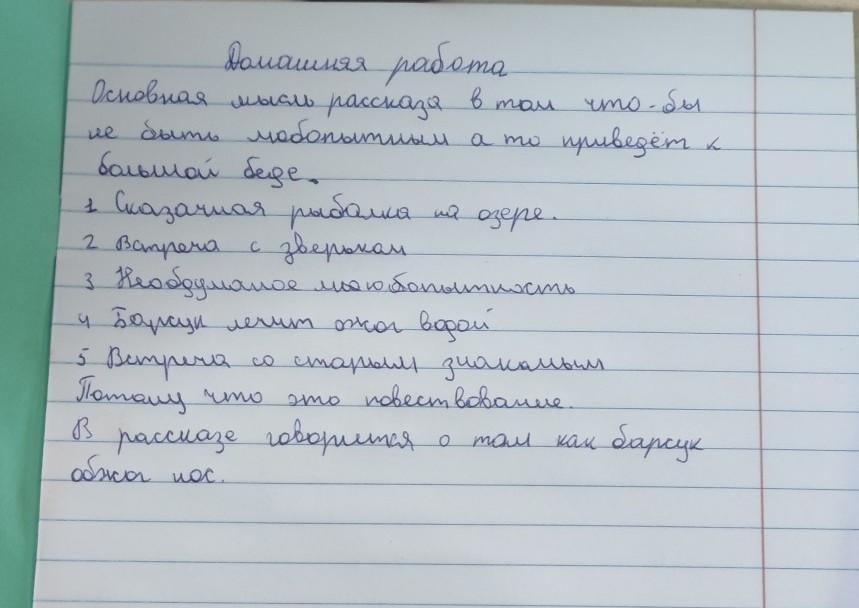 Домашняя работа
Основная мысль рассказа в том что-бы
не быть любопытным а то приведёт к
большой беде.
1 Сказачная рыбалка на озере.
2 Встреча с зверьком
3 Необдуманое любопытность
4 Барсук лечит ожог водой
5 Встреча со старым знакомым
Потому что это повествование.
В рассказе говорится о том как барсук
обжог нос.